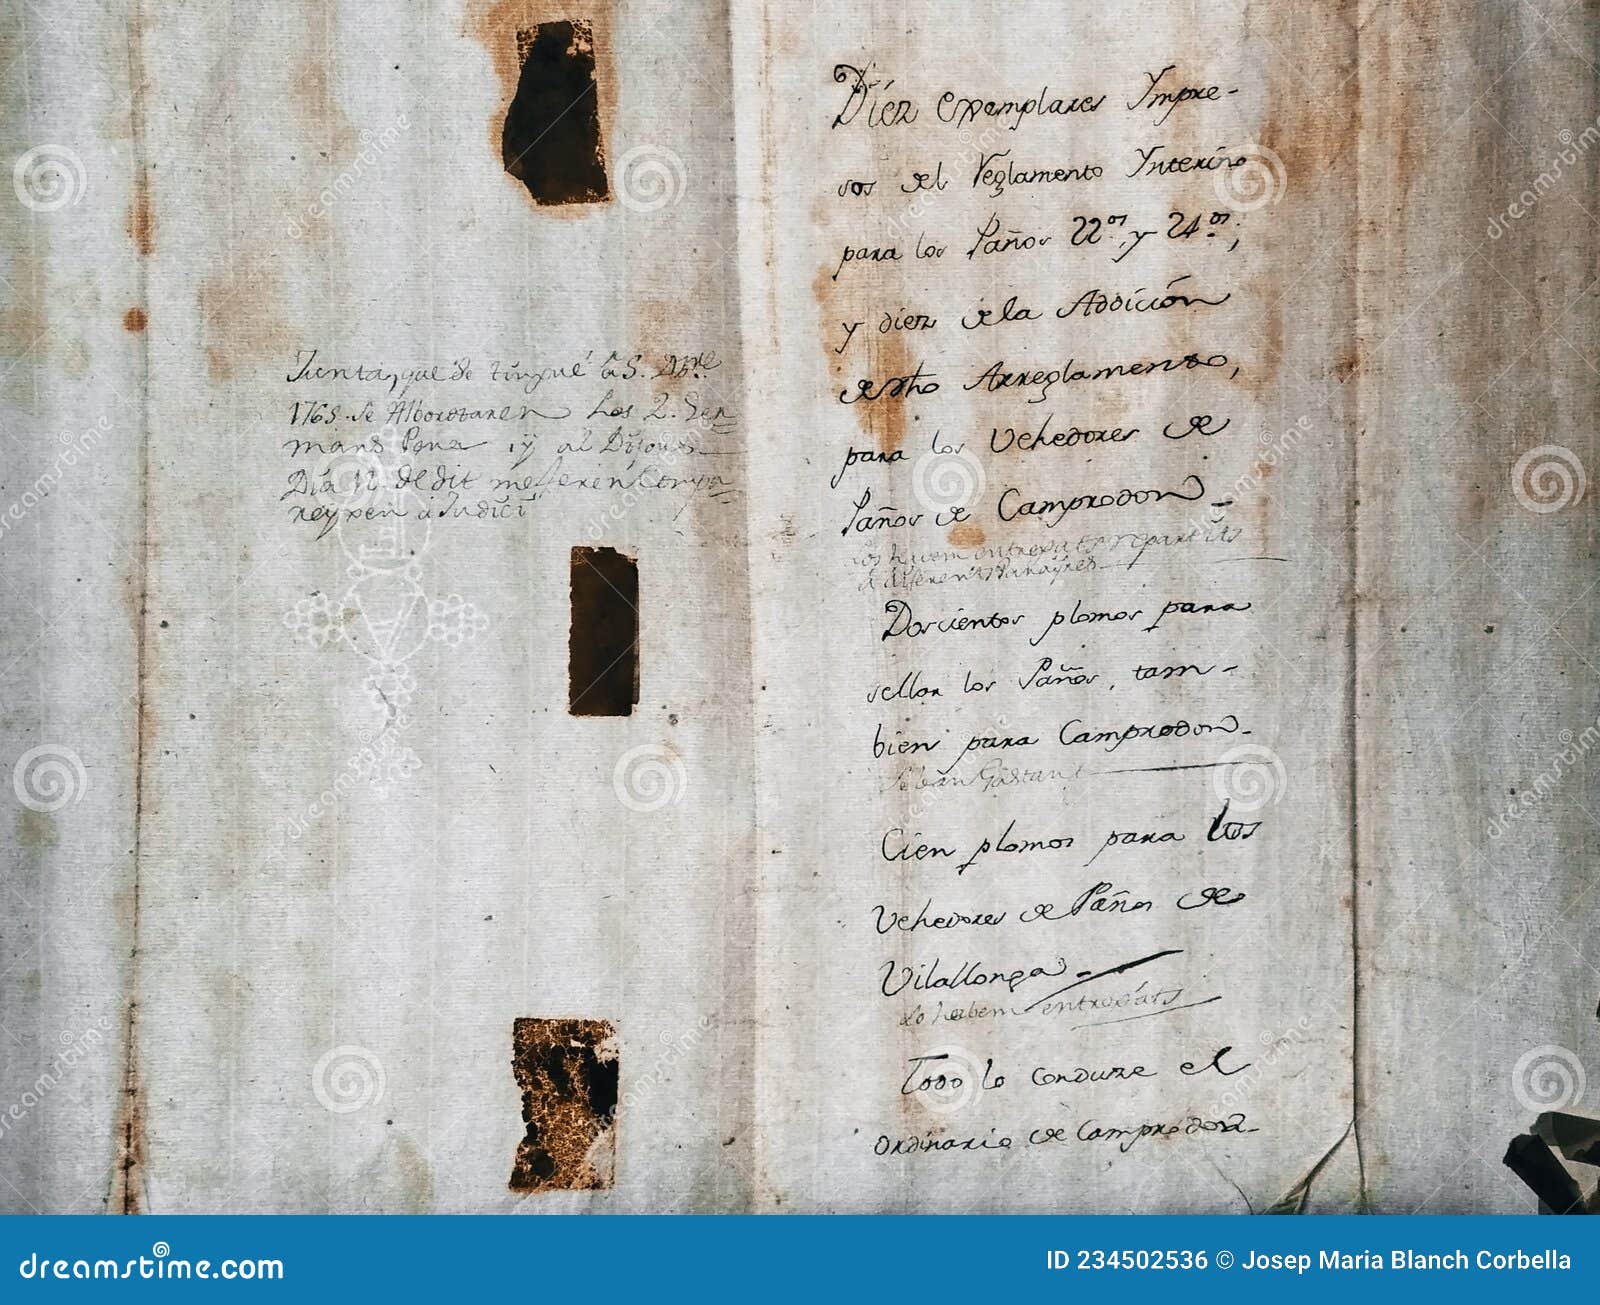 Junta, que se tingué à 5. Dbre.
1765. se Alborotaren Los 2. Ger=
mans Pena y al Dijous
Dia 12. de dit me feren Compa=
reyxen à Judici
Diez exemplares Ympre-
sos del Reglamento Ynterino
para los Paños 22.os y 24.os;
y diez dela Addición
de dho Arreglamento,
para los Vehedores de
Paños de Camprodon
Los havem entregats
à diferents Parayres
Dorcientos plomos para
sellar los Paños, tam-
bien para Camprodon.
Se van Gastant
Cien plomos para los
Vehedores de Paños de
Vilallonga.
Lo habem entregats
Todo lo conduze el
ordinario de Camprodon.
dreamstime.com
ID 234502536 © Josep Maria Blanch Corbella